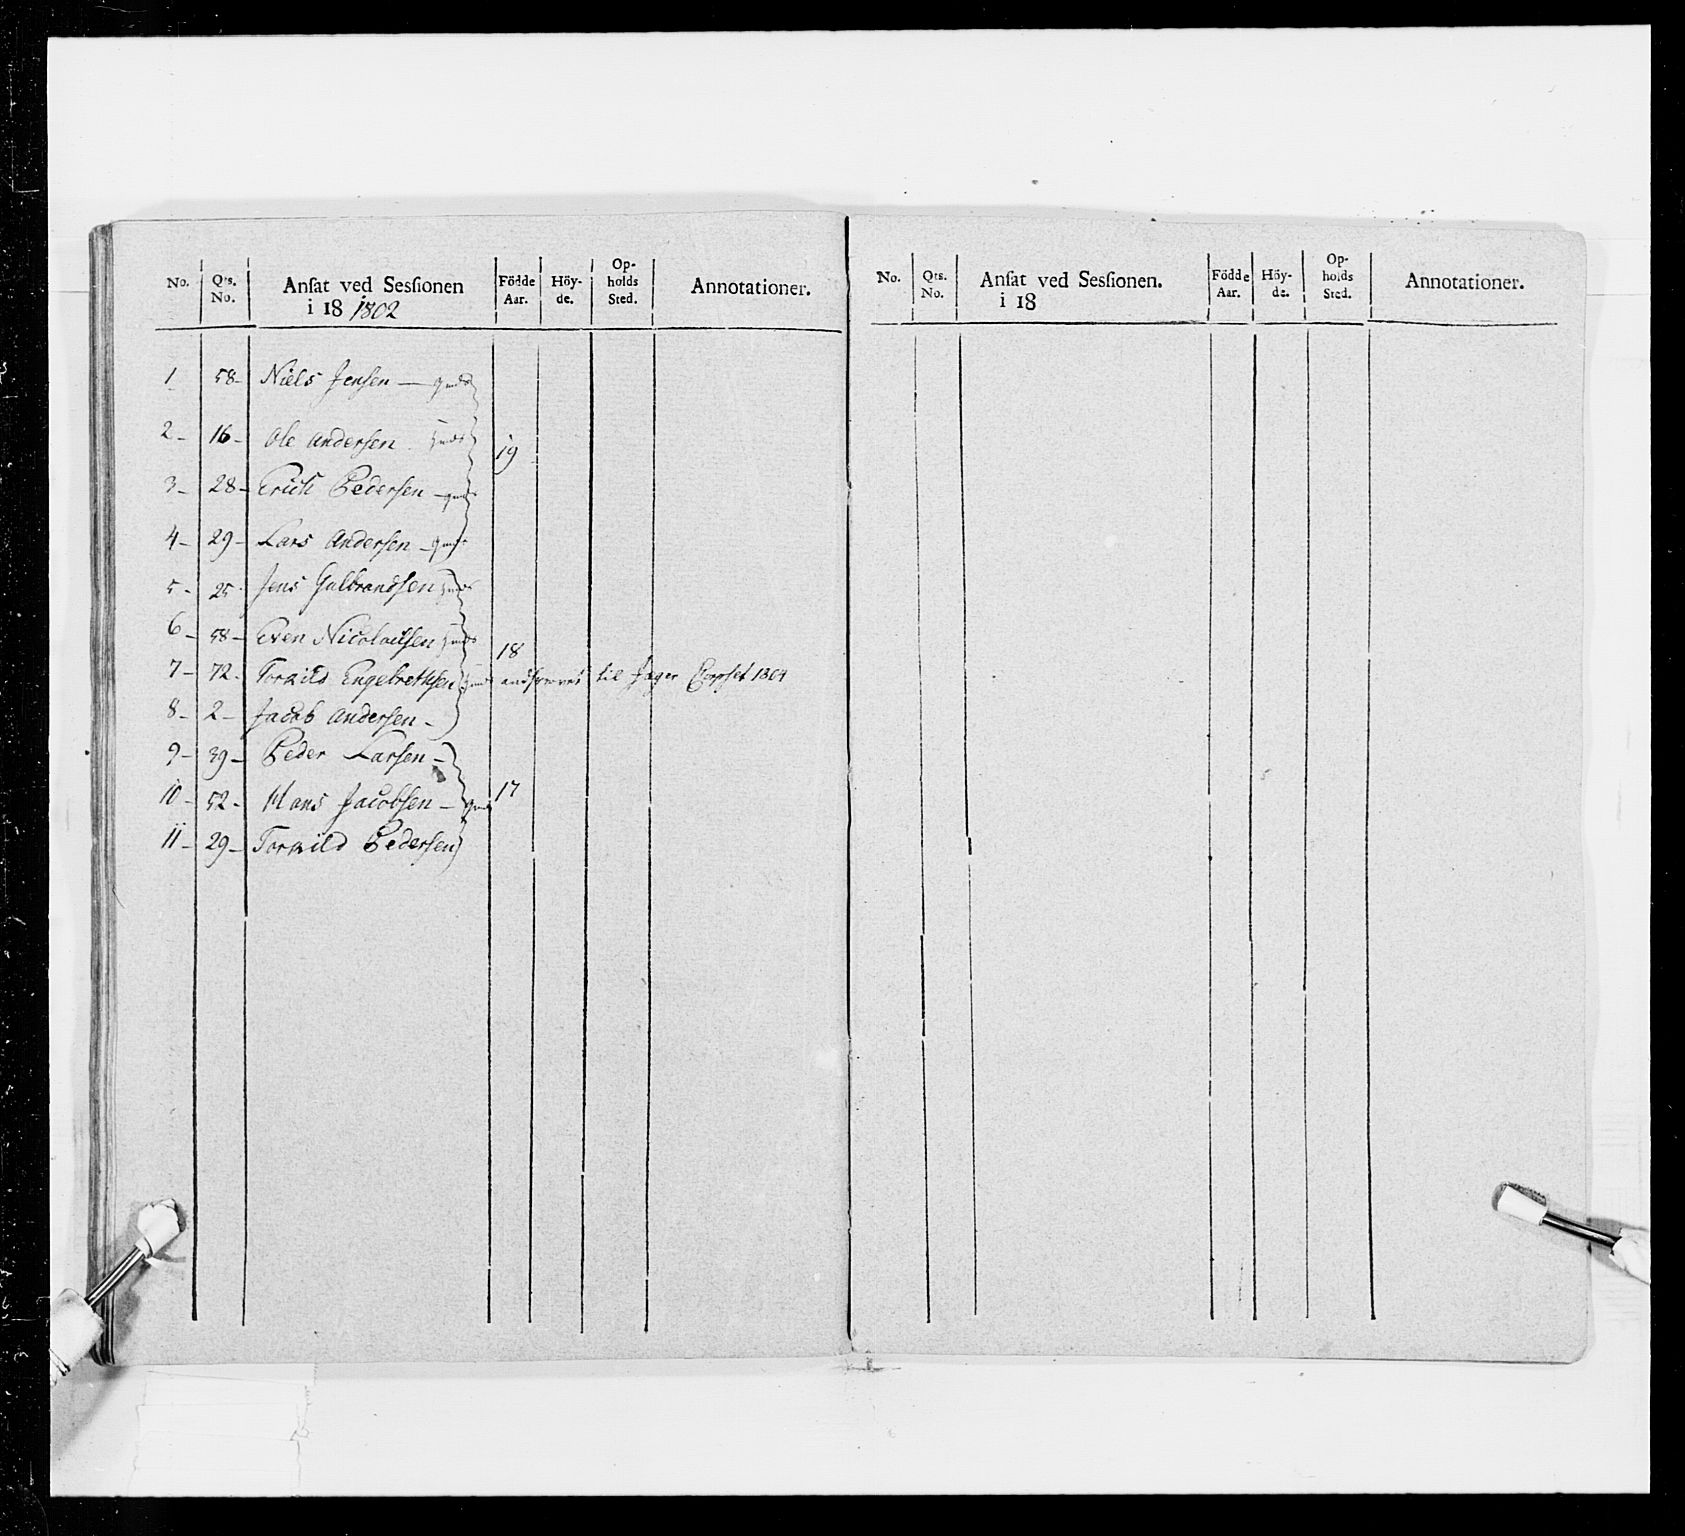 No. Qts. No. Ansat ved Sessionen i 18 1802 Födde Aar. Höy-de. Op-holds Sted. Annotationer.
1 58- Niels Jensen —
2- 16- Ole Andersen. 19
3- 28- Erich Pedersen -
4- 29- Lars Andersen -
5- 25- Jens Gulbrandsen
6- 58- Even Nicolaisen 18
7- 72- Torkild Engebrethsen til Jæger Corpset 1804
8- 2- Jacob Andersen -
9- 39- Peder Larsen -
10- 52- Hans Jacobsen - 17
11- 29- Torkild Pedersen
No. Qts. No. Ansat ved Sessionen. i 18 Födde Aar. Höy-de. Op-holds Sted. Annotationer.